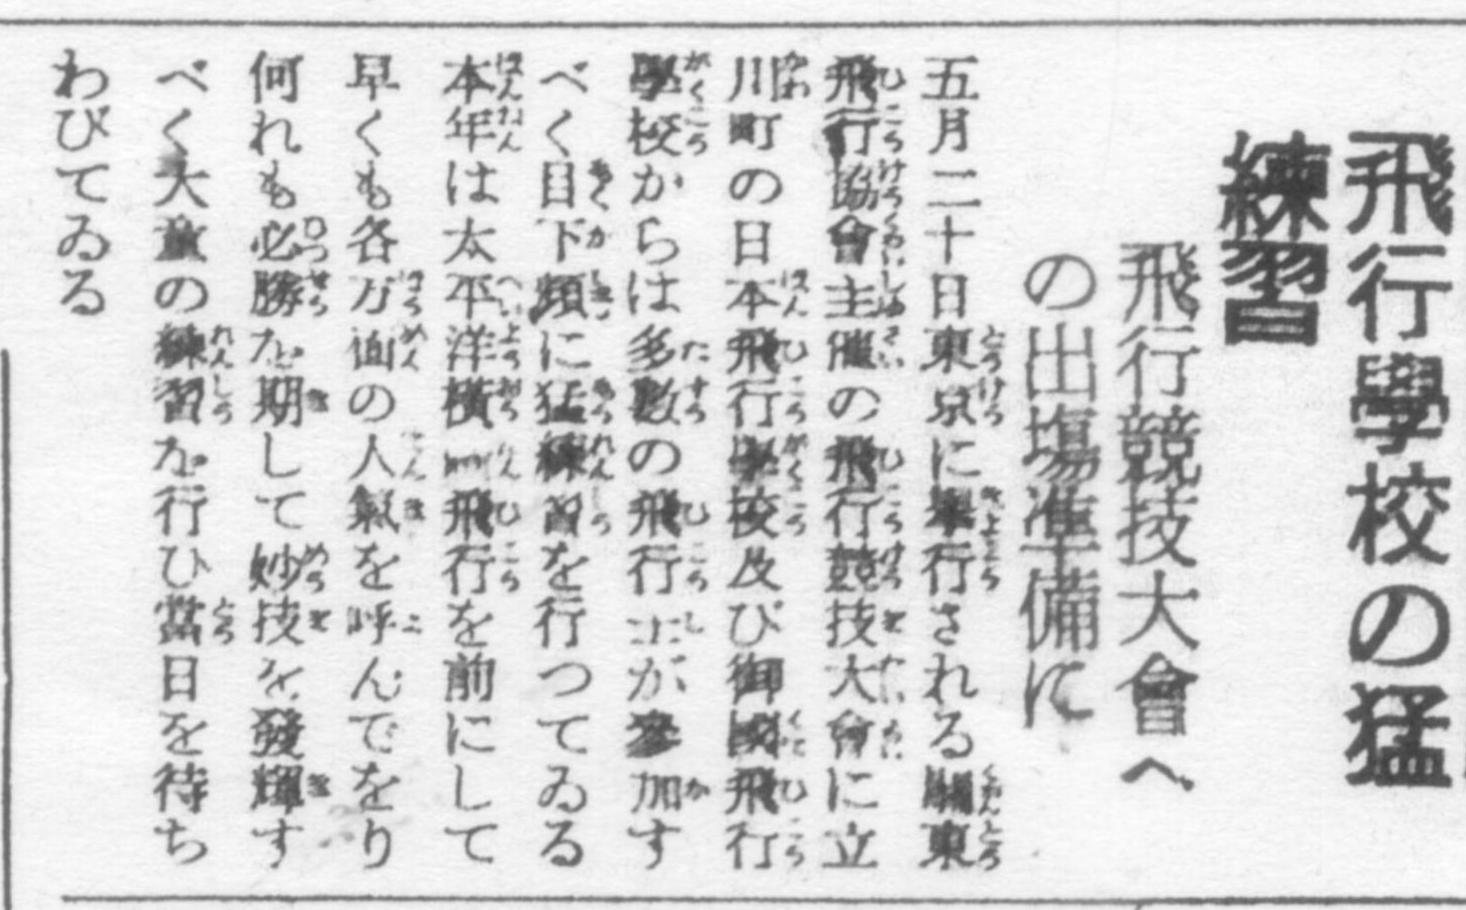 飛行學校の猛
練習
飛行競技大會へ
の出塲準備に
五月二十日東京に擧行される關東
飛行協會主催の飛行競技大會に立
川町の日本飛行學校及び御國飛行
學校からは多數の飛行士が參加す
べく目下頻に猛練習を行つてゐる
本年は太平洋橫斷飛行を前にして
早くも各方面の人氣を呼んでをり
何れも必勝を期して妙技を發輝す
べく大童の練習を行ひ當日を待ち
わびてゐる